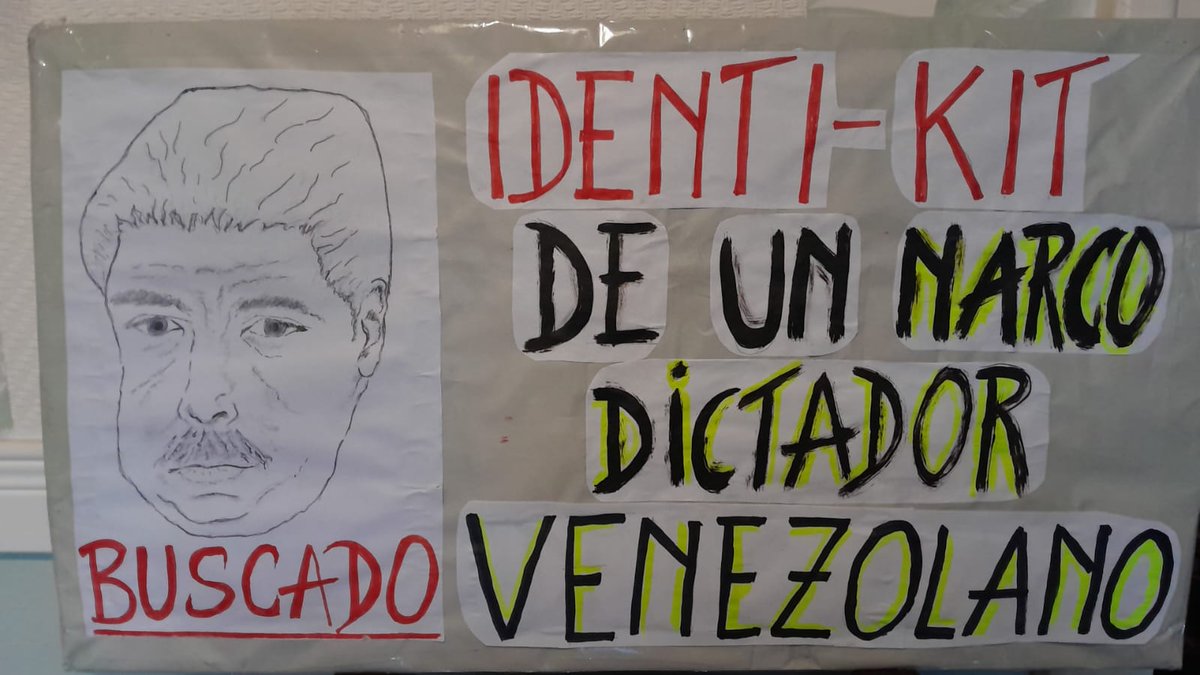 IDENTI-KIT
DE UN NARCO
DiCTADOR
VENEZOLANO
BUSCADO